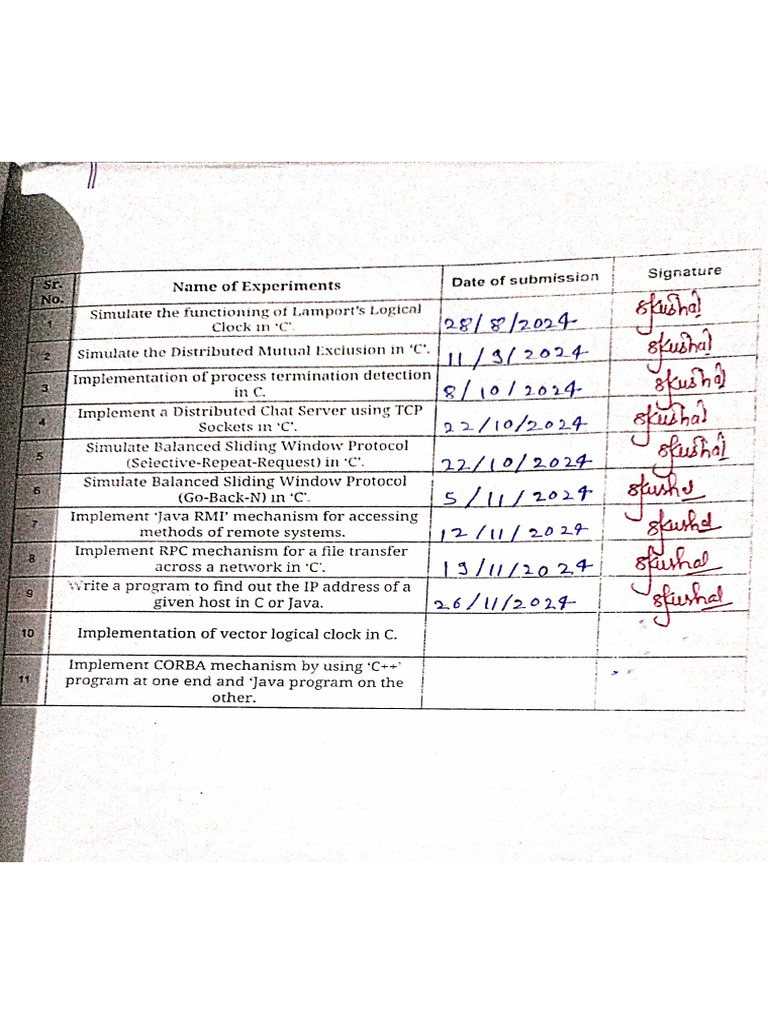 Sr. No. Name of Experiments Date of submission Signature
1 Simulate the functioning of Lamport's Logical
Clock in 'C'. 28/8/2024
2 Simulate the Distributed Mutual Exclusion in 'C'. 11/9/2024
3 Implementation of process termination detection
in C. 8/10/2024
4 Implement a Distributed Chat Server using TCP
Sockets in 'C'. 22/10/2024
5 Simulate Balanced Sliding Window Protocol
(Selective-Repeat-Request) in 'C'. 22/10/2024
6 Simulate Balanced Sliding Window Protocol
(Go-Back-N) in 'C'. 5/11/2024
7 Implement 'Java RMI' mechanism for accessing
methods of remote systems. 12/11/2024
8 Implement RPC mechanism for a file transfer
across a network in 'C'. 19/11/2024
9 Write a program to find out the IP address of a
given host in C or Java. 26/11/2024
10 Implementation of vector logical clock in C.
11 Implement CORBA mechanism by using 'C++'
program at one end and 'Java program on the
other.